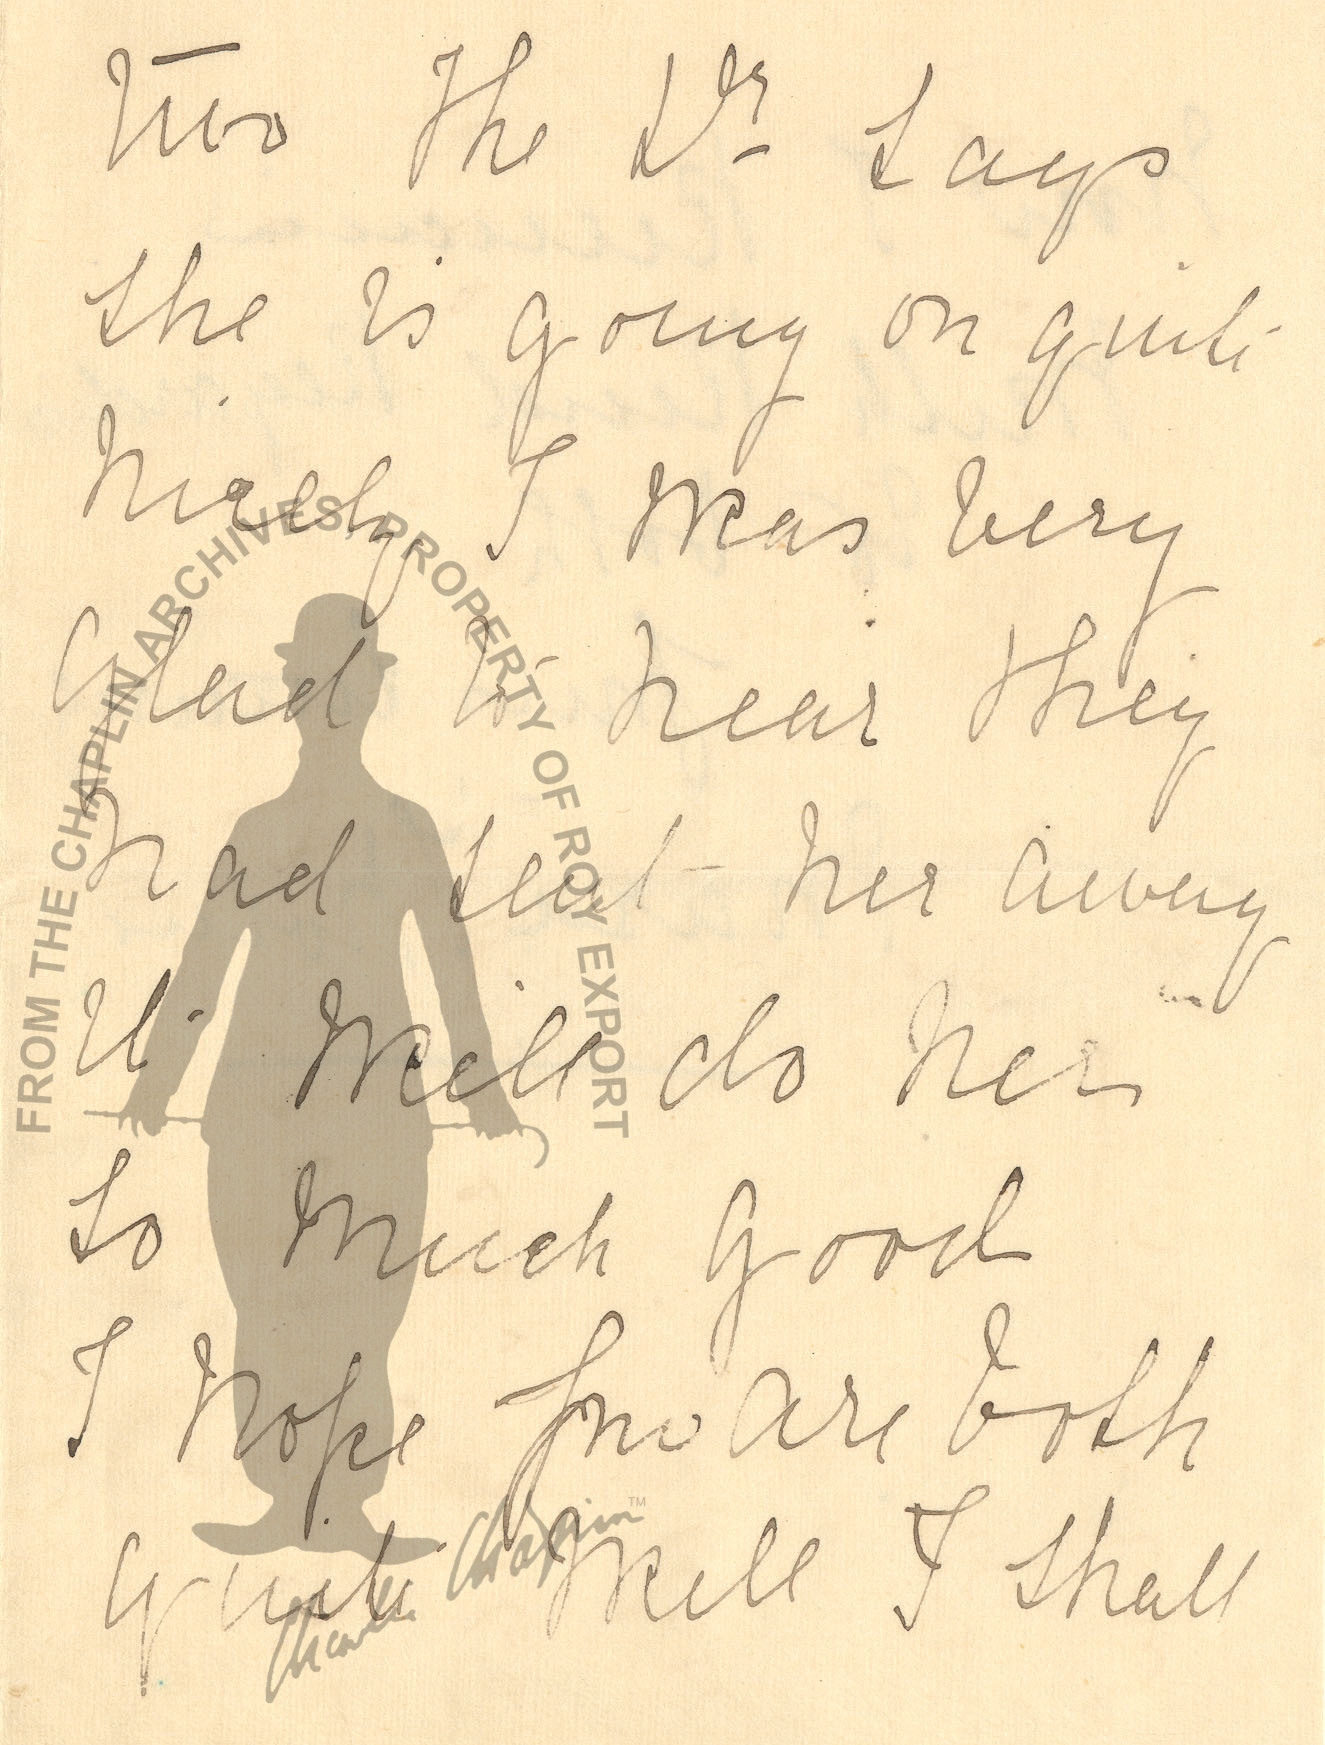 Two the Dr says
she is going on quite
nicely I was very
Glad to hear they
had sent her away
it will do her
so much good
I hope you are both
quite well I shall
FROM THE CHAPLIN ARCHIVES, PROPERTY OF ROY EXPORT
Charlie Chaplin™